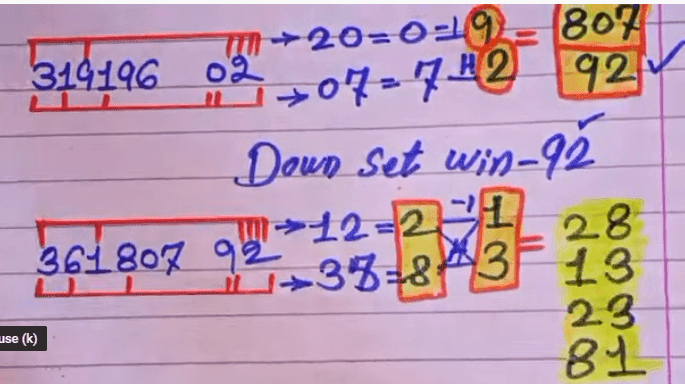 → 20 = 0 -1 9 = 807
319196 02
→ 07 = 7 H 2 92 ✓
Down Set win-92 ✓
→ 12 = 2 -1 1 = 28
361807 92 13
→ 38 = 8 H 3 23
81
use (k)